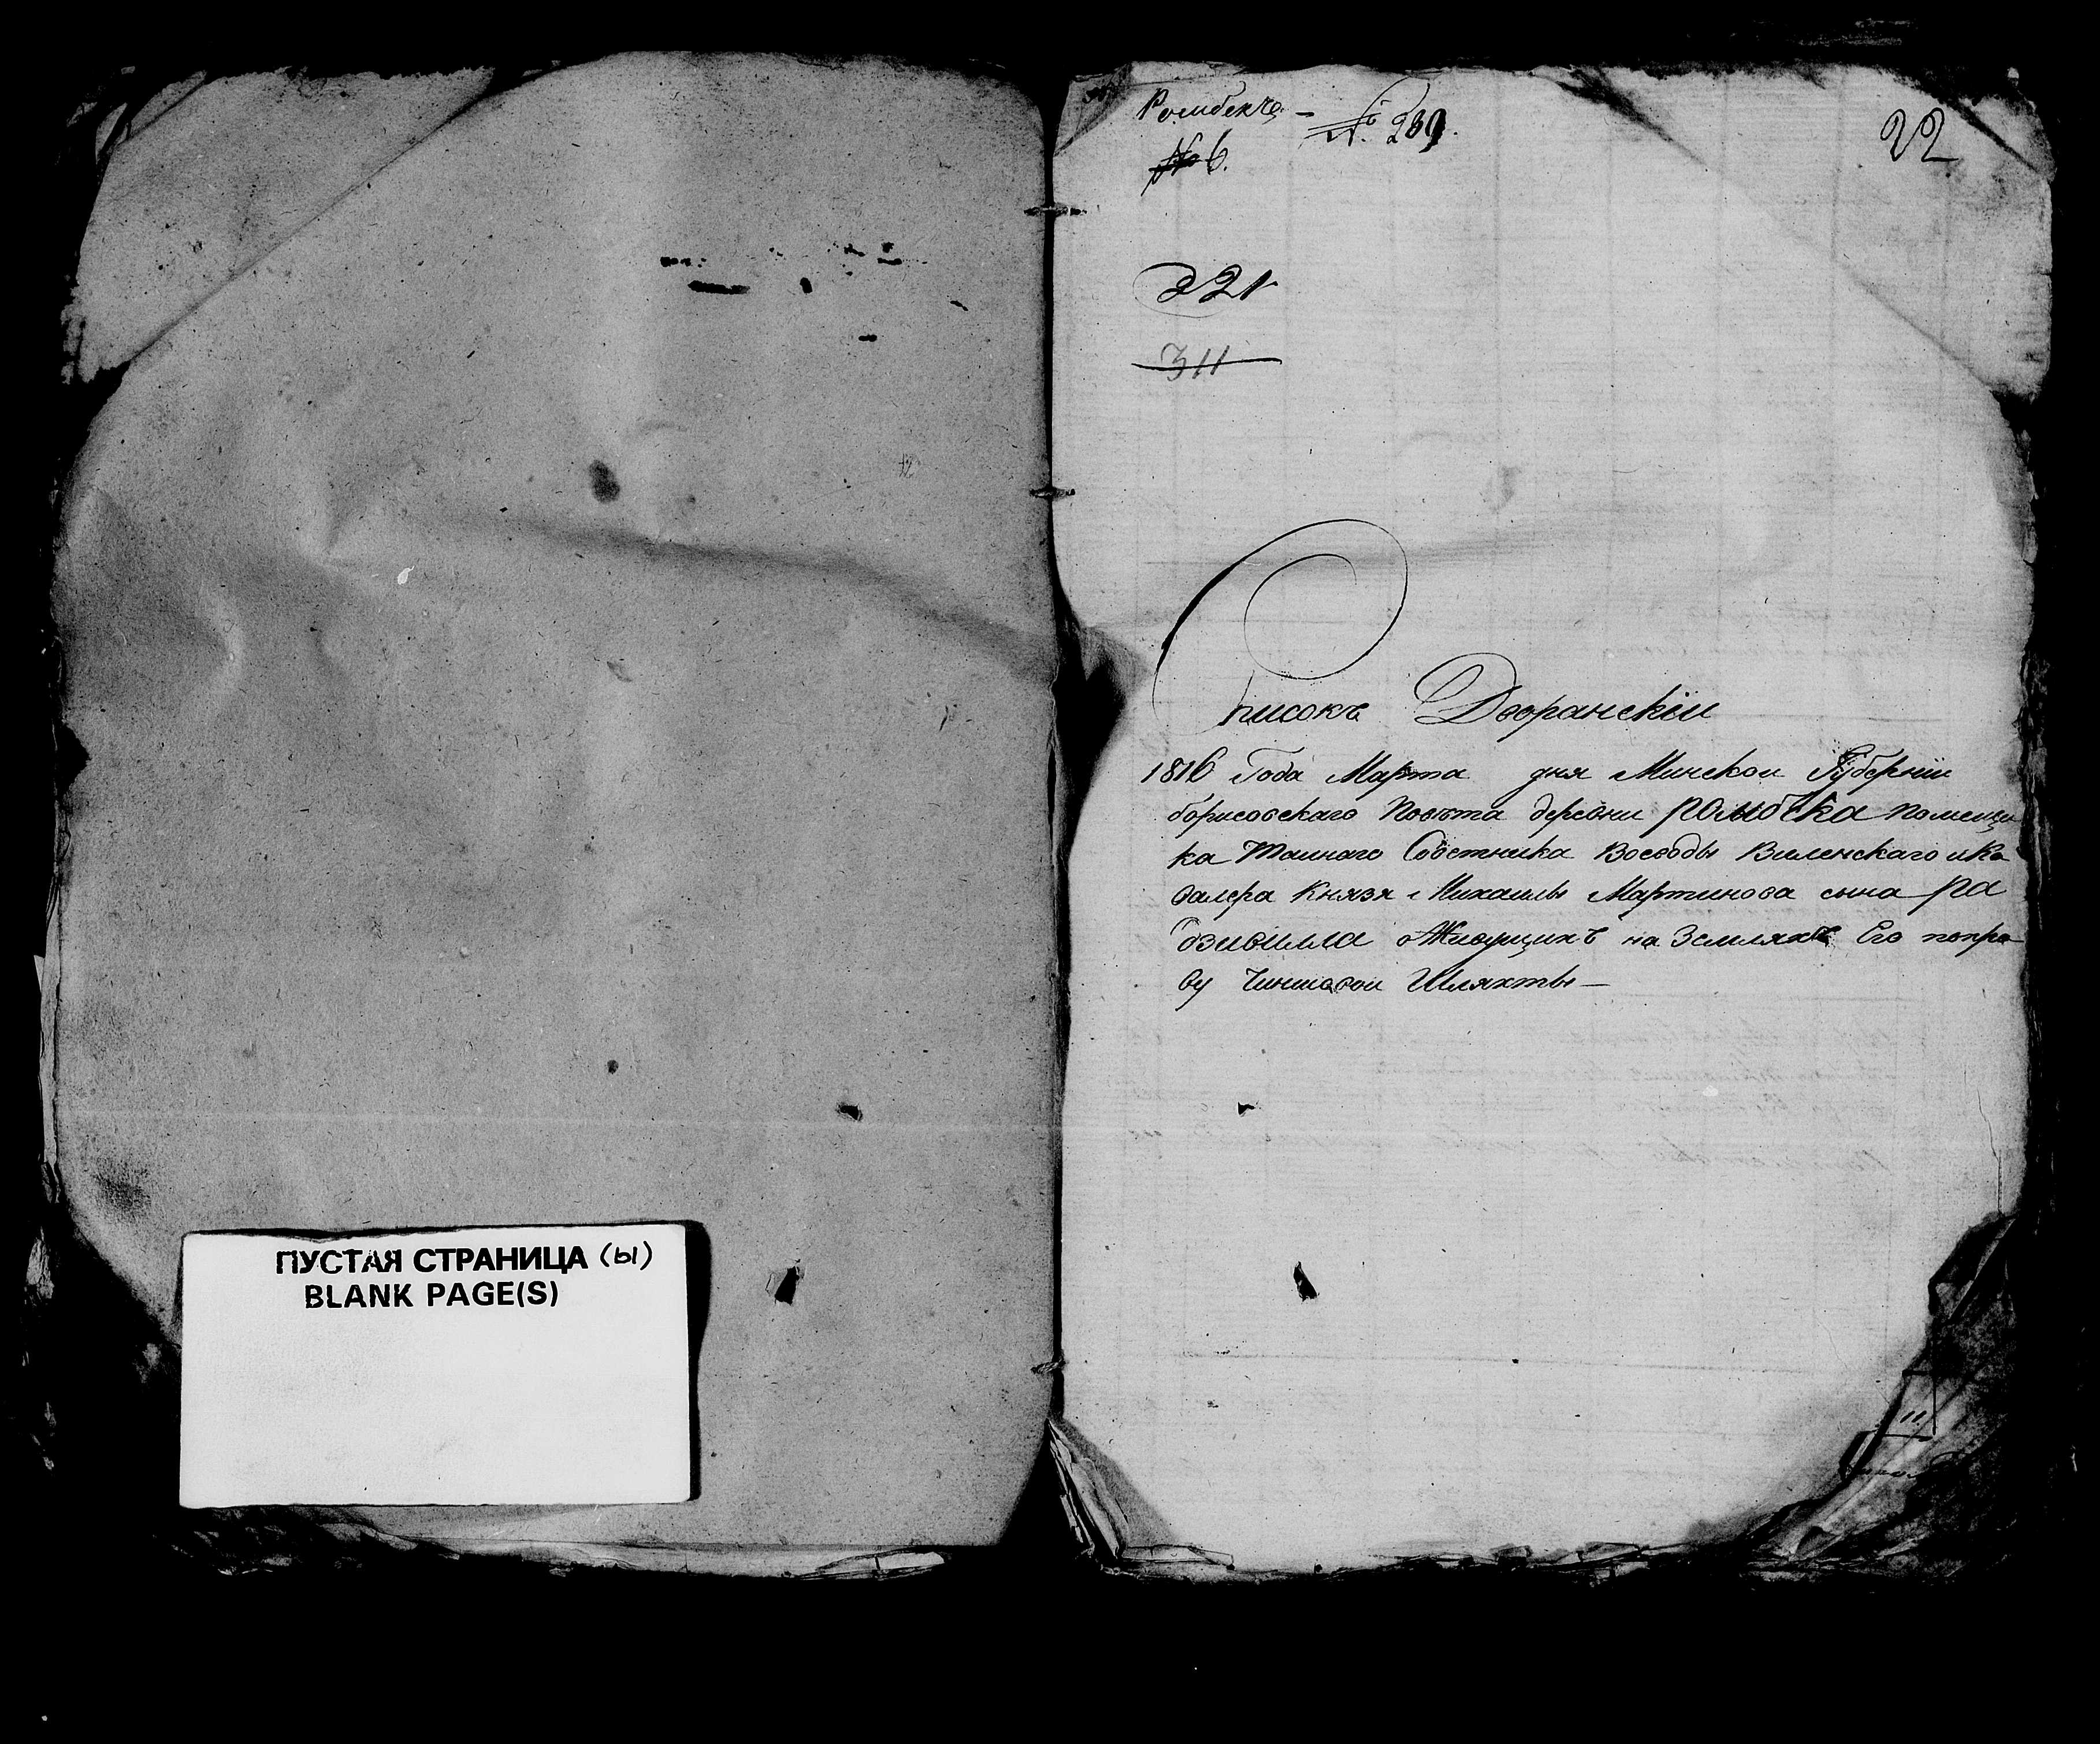 ПУСТАЯ СТРАНИЦА (ы)
BLANK PAGE(S)
№ 239.
22
№ 6.
221
311
Списокъ Дворянскіи
1816 Года Марта дня Минскои Губерніи
борисовскаго Повѣта деревни Ромбека помещи
ка Таинаго Совѣтника Воеводы Виленскаго и Ка
валера Князя Михаилы Мартинова сына Ра
дзивилла Живущихъ на Земляхъ Его попра
ву Чиншовои Шляхты—
11